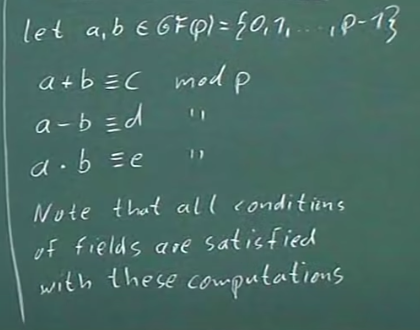 let a, b ∈ GF(p) = {0, 1, ..., p-1}
a + b ≡ c mod p
a - b ≡ d "
a · b ≡ e "
Note that all conditions
of fields are satisfied
with these computations